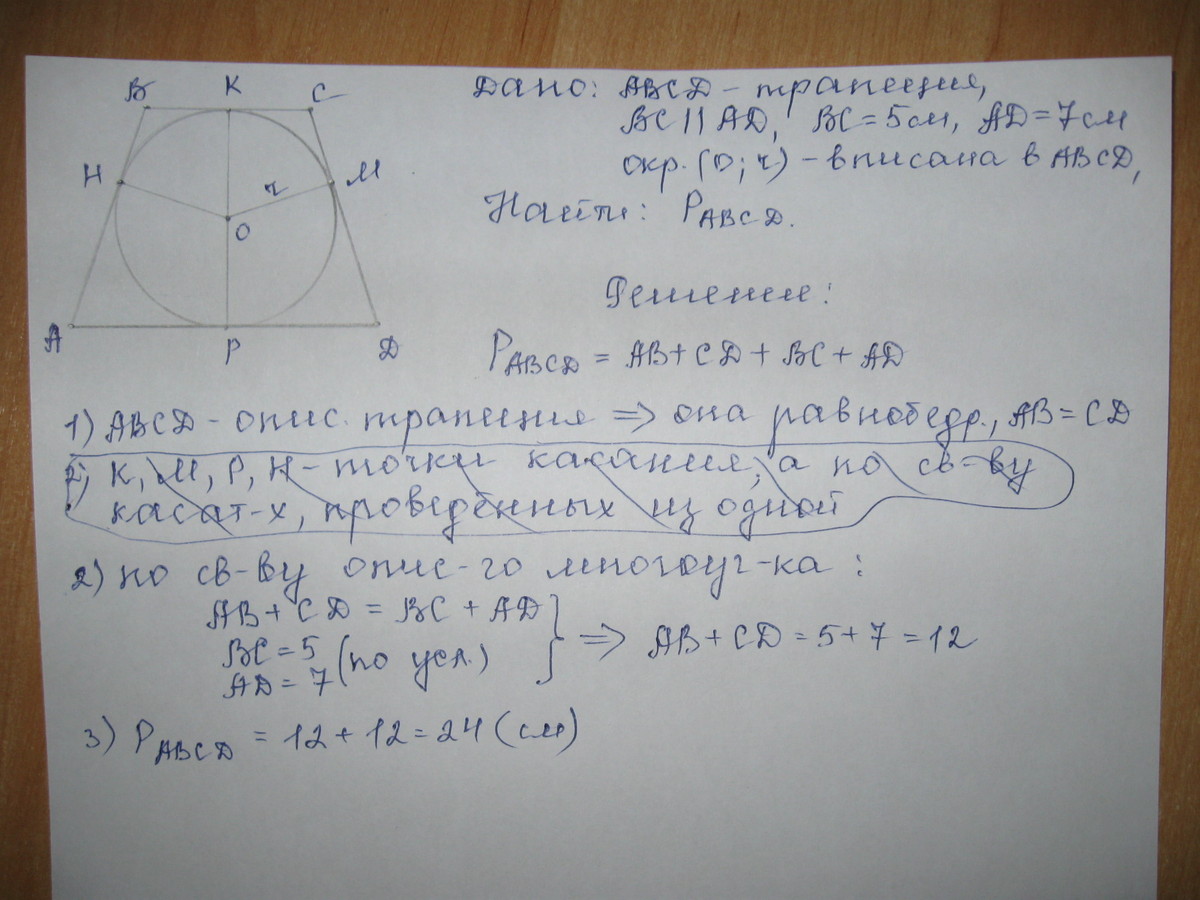 B K C
H r M
O
A P D
Дано: ABCD - трапеция,
BC || AD, BC = 5см, AD = 7см
окр. (O; r) - вписана в ABCD,
Найти: P ABCD.
Решение:
P ABCD = AB + CD + BC + AD
1) ABCD - опис. трапеция => она равнобедр., AB = CD
2) K, M, P, H - точки касания, а по св-ву
касат-х, проведённых из одной
2) по св-ву опис-го многоуг-ка:
AB + CD = BC + AD
BC = 5
AD = 7 (по усл.) } => AB + CD = 5 + 7 = 12
3) P ABCD = 12 + 12 = 24 (см)